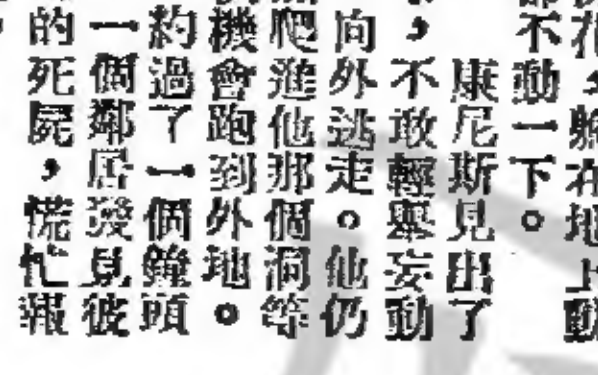 ，躺在地上動
不動一下。
康尼斯見出了
，不敢輕舉妄動
向外逃走。他仍
爬進他那個洞等
機會跑到外地。
約過了一個鐘頭
一個鄰居發見彼
的死屍，慌忙報